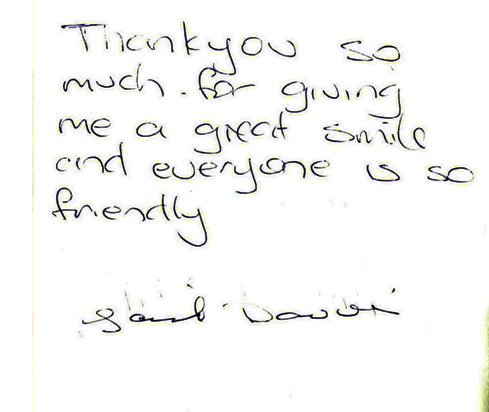 Thankyou so
much. for giving
me a great smile
and everyone is so
friendly